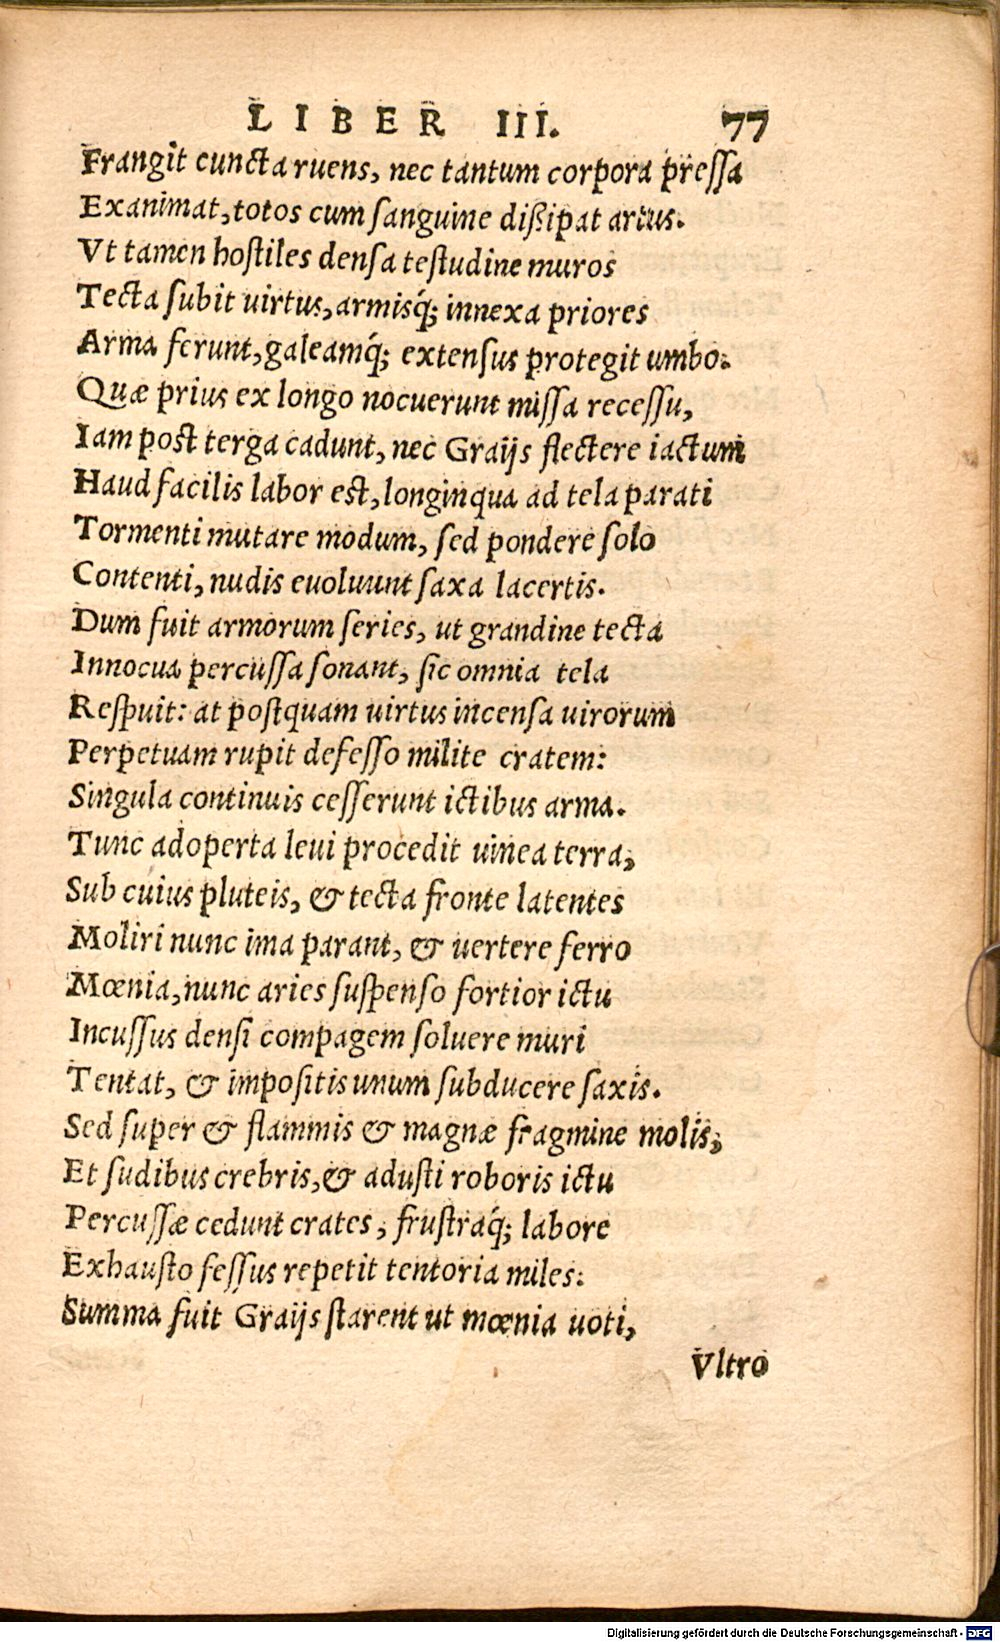 LIBER III. 77
Frangit cuncta ruens, nec tantum corpora pressa
Exanimat, totos cum sanguine dißipat artus.
Vt tamen hostiles densa testudine muros
Tecta subit uirtus, armisq́; innexa priores
Arma ferunt, galeamq́; extensus protegit umbo.
Quæ prius ex longo nocuerunt missa recessu,
Iam post terga cadunt, nec Graijs flectere iactum
Haud facilis labor est, longinqua ad tela parati
Tormenti mutare modum, sed pondere solo
Contenti, nudis euoluunt saxa lacertis.
Dum fuit armorum series, ut grandine tecta
Innocua percussa sonant, sic omnia tela
Respuit: at postquam uirtus incensa uirorum
Perpetuam rupit defesso milite cratem:
Singula continuis cesserunt ictibus arma.
Tunc adoperta leui procedit uinea terra,
Sub cuius pluteis, & tecta fronte latentes
Moliri nunc ima parant, & uertere ferro
Mœnia, nunc aries suspenso fortior ictu
Incussus densi compagem soluere muri
Tentat, & impositis unum subducere saxis.
Sed super & flammis & magnæ fragmine molis,
Et sudibus crebris, & adusti roboris ictu
Percussæ cedunt crates, frustraq́; labore
Exhausto fessus repetit tentoria miles:
Summa fuit Graijs starent ut mœnia uoti,
Vltro
Digitalisierung gefördert durch die Deutsche Forschungsgemeinschaft - DFG